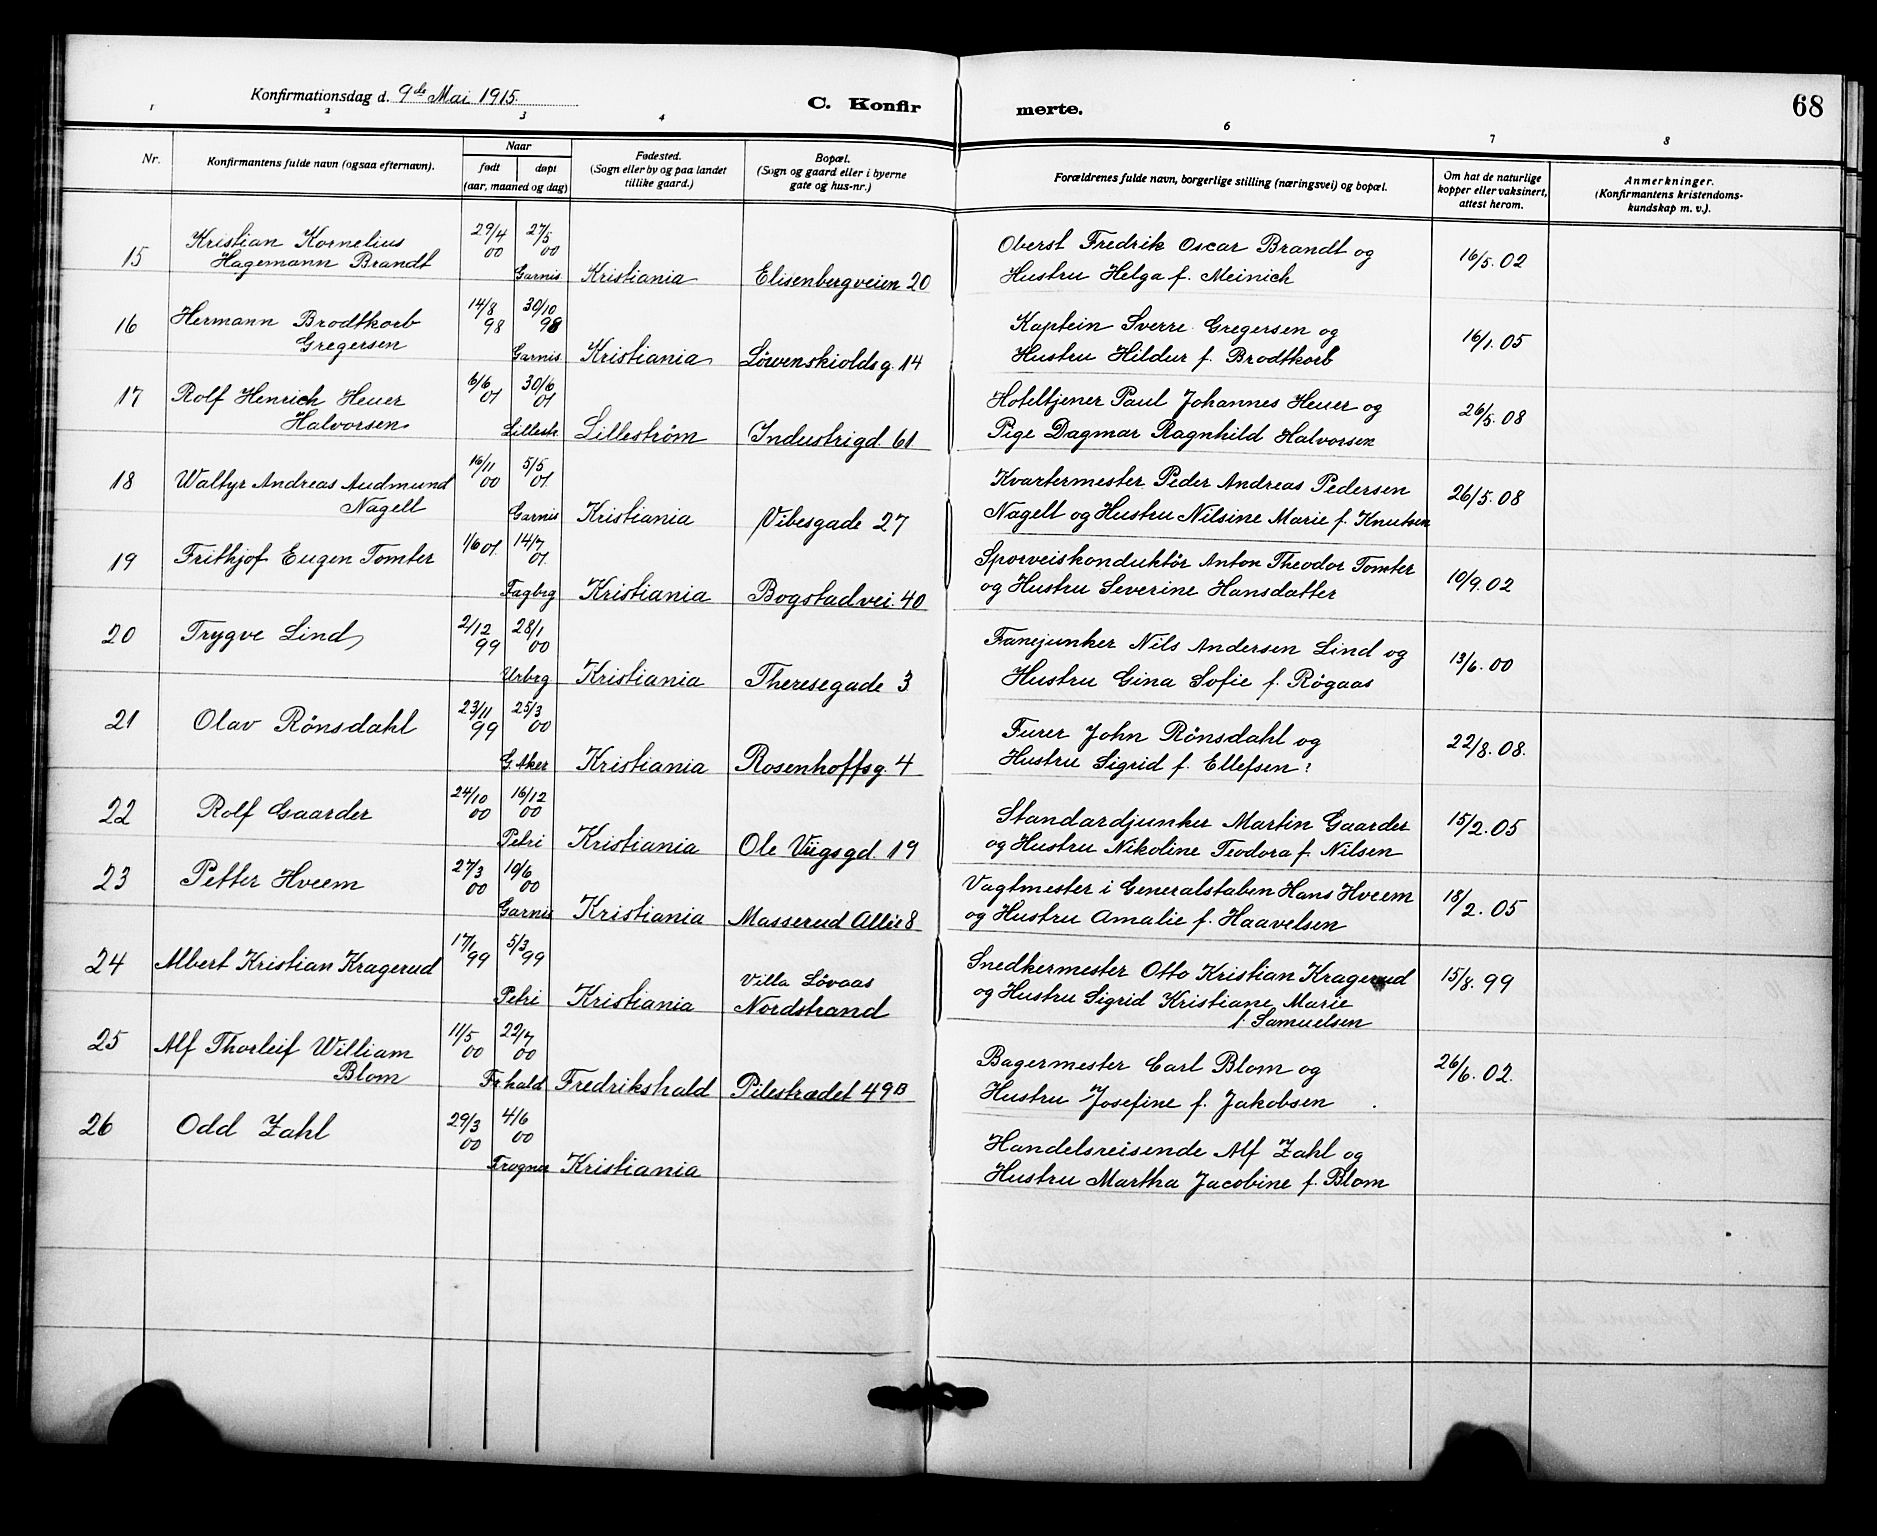 Konfirmationsdag d. 9de Mai 1915.
C. Konfirmerte.
68
1 2 3 4 6 7 8
Nr.
Konfirmantens fulde navn (ogsaa efternavn).
Naar
født døpt
(aar, maaned og dag)
Fødested.
(Sogn eller by og paa landet
tillike gaard.)
Bopæl.
(Sogn og gaard eller i byerne
gate og hus-nr.)
Forældrenes fulde navn, borgerlige stilling (næringsvei) og bopæl.
Om hat de naturlige
kopper eller vaksinert,
attest herom.
Anmerkninger.
(Konfirmantens kristendoms-
kundskap m. v.).
15 Kristian Kornelius 29/4 00 27/5 00 Oberst Fredrik Oscar Brandt og 16/5. 02
Hagemann Brandt Garnis Kristiania Elisenbergveien 20 Hustru Helga f. Meinich
16 Hermann Brodtkorb 14/8 98 30/10 98 Kaptein Sverre Gregersen og 16/1. 05
Gregersen Garnis Kristiania Løvenskioldsg. 14 Hustru Hildur f. Brodtkorb
17 Rolf Henrich Heuer 6/6 01 30/6 01 Hoteltjener Paul Johannes Heuer og 26/5. 08
Halvorsen Lillestr. Lillestrøm Industrigd. 61 Pige Dagmar Ragnhild Halvorsen
18 Waltyr Andreas Audmund 16/11 00 5/5 01. Kvartermester Peder Andreas Pedersen 26/5. 08
Nagell Garnis Kristiania Vibesgade 27 Nagell og Hustru Nilsine Marie f. Knutsen
19 Frithjof Eugen Tomter 1/6 01. 14/7 01. Sporveiskonduktör Anton Theodor Tomter 10/9. 02
Fagbrg Kristiania Bogstadvei. 40 og Hustru Severine Hansdatter
20 Trygve Lind 2/12 99 28/1 00 Fanejunker Nils Andersen Lind og 13/6. 00
Urbrg Kristiania Theresegade 3 Hustru Gina Sofie f. Røgaas
21 Olav Rönsdahl 23/11 99 25/3 00 Furer John Rönsdahl og 22/8. 08.
G. Aker Kristiania Rosenhoffsg. 4 Hustru Sigrid f. Ellefsen.
22 Rolf Gaarder 24/10 00 16/12 00 Standardjunker Martin Gaarder 15/2. 05
Petri Kristiania Ole Viigsgd. 19 og Hustru Nikoline Teodora f. Nilsen
23 Petter Hveem 27/3 00 10/6 00 Vagtmester i Generalstaben Hans Hveem 18/2. 05
Garnis Kristiania Masserud Allée 8 og Hustru Amalie f. Haavelsen
24 Albert Kristian Kragerud 17/1 99 5/3 99 Villa Lövaas Snedkermester Otto Kristian Kragerud 15/8. 99
Petri Kristiania Nordstrand og Hustru Sigrid Kristiane Marie
f. Samuelsen
25 Alf Thorleif William 11/5 00 22/7 00 Bagermester Carl Blom og 26/6. 02.
Blom Fr hald Fredrikshald Pilestrædet 49B Hustru Josefine f. Jakobsen
26 Odd Zahl 29/3 00 4/6 00 Handelsreisende Alf Zahl og
Frogner Kristiania Hustru Martha Jacobine f. Blom